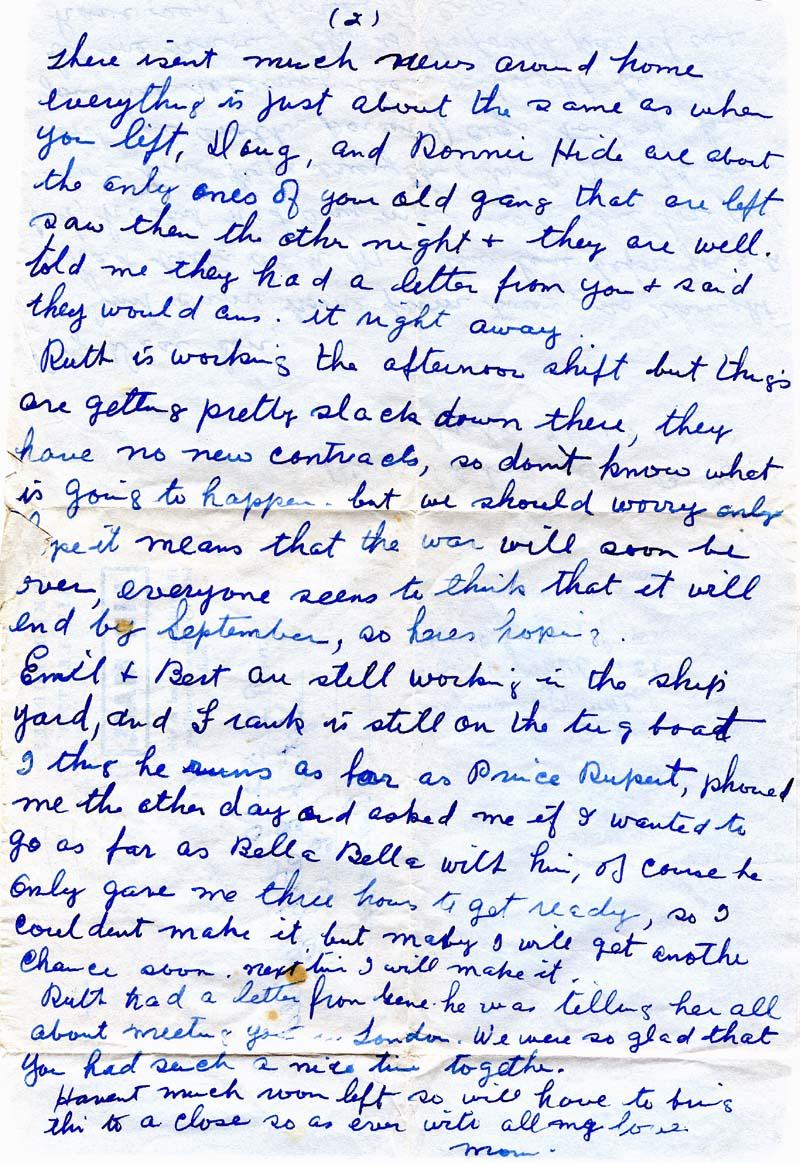 (2)
There isent much news around home
everything is just about the same as when
you left, Doug, and Bonnie Hide are about
the only ones of your old gang that are left
saw them the other night + they are well.
told me they had a letter from you + said
they would ans. it right away.
Ruth is working the afternoon shift but things
are getting pretty slack down there, they
have no new contracts, so don't know what
is going to happen. but we should worry only
hope it means that the war will soon be
over, everyone seems to think that it will
end by September, so heres hoping.
Emil + Bert are still working in the ship
yard, and Frank is still on the tug boat
I thing he runs as far as Prince Rupert, phoned
me the other day and asked me if I wanted to
go as far as Bella Bella with him, of course he
only gave me three hours to get ready, so I
couldent make it, but mayby I will get another
chance soon. next time I will make it.
Ruth had a letter from Gene. he was telling her all
about meeting you in London. We were so glad that
you had such a nice time together.
Havent much room left so will have to bring
this to a close so as ever with all my love
Mom.